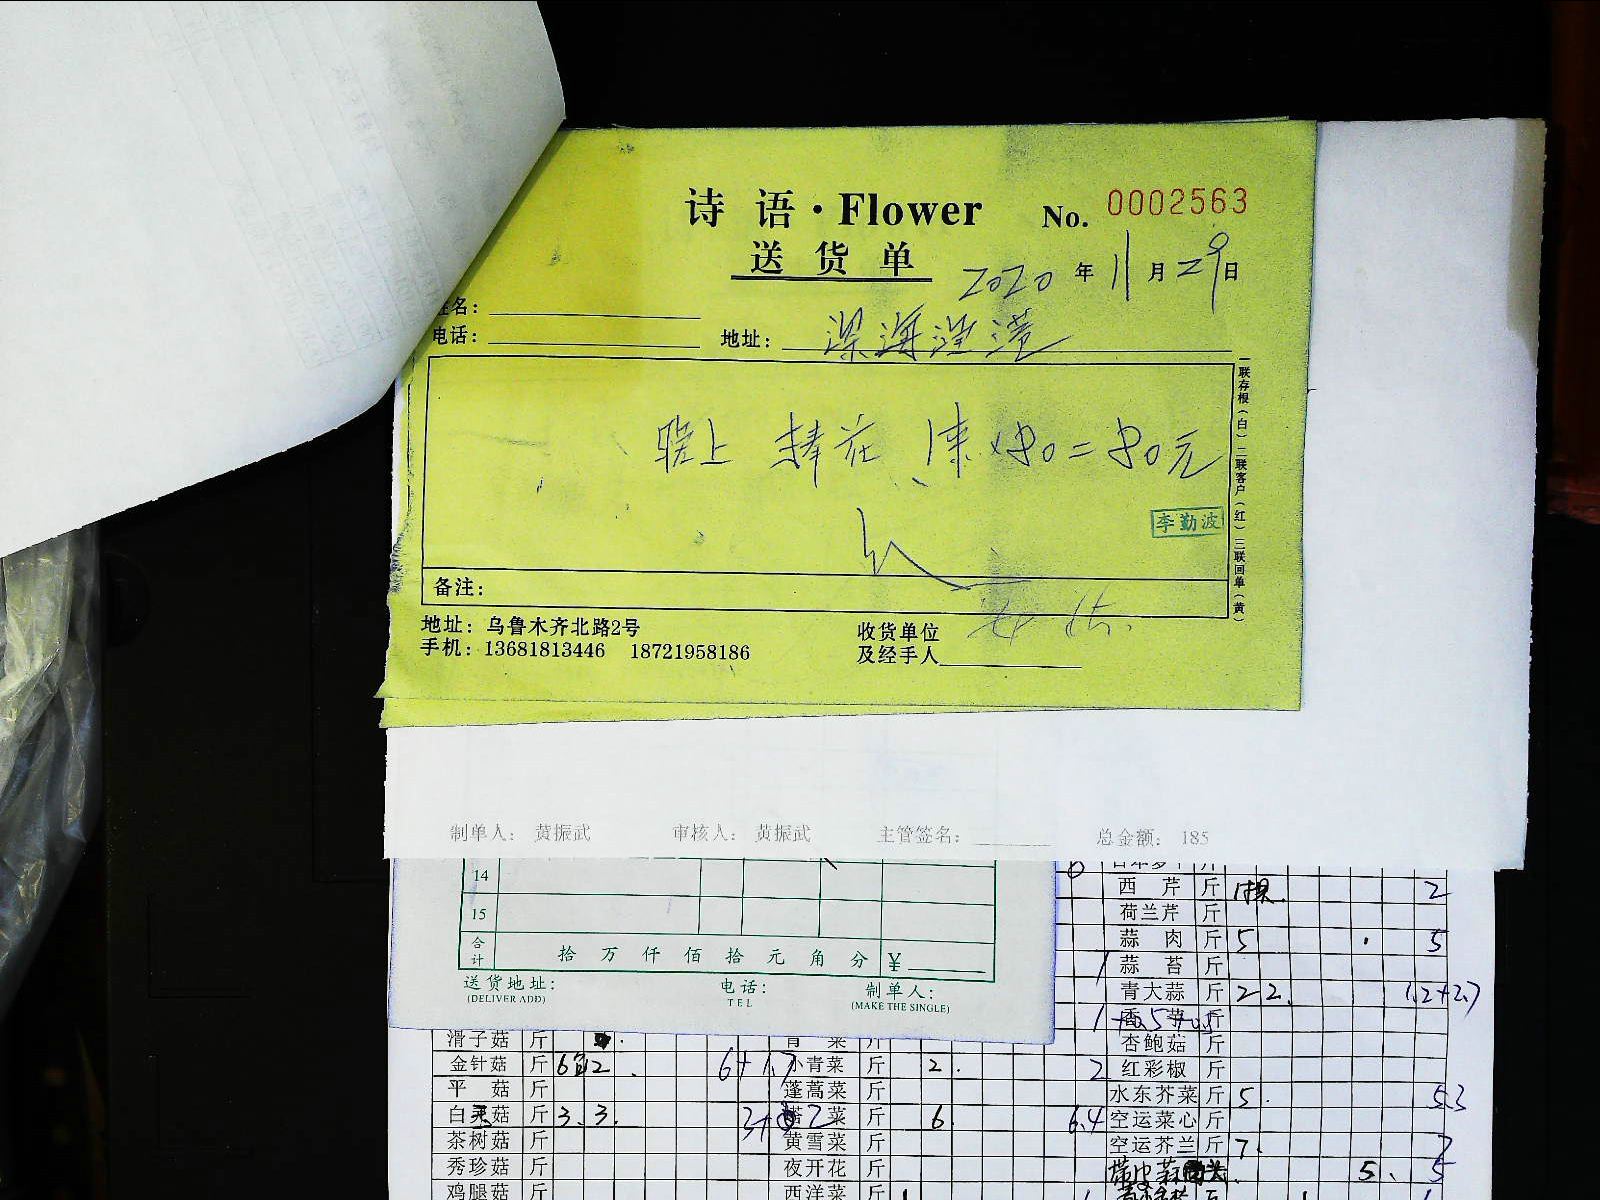 诗 语·Flower No. 0002563
送 货 单
2020 年 11 月 29 日
姓名：
电话： 地址： 深海涟漪
晚上 捧花 1束×80=80元
李勤波
备注：
地址：乌鲁木齐北路2号
手机：13681813446 18721958186
收货单位
及经手人
一联存根（白）二联客户（红）三联回单（黄）
制单人： 黄振武 审核人： 黄振武 主管签名： 总金额： 185
14
15
合计 拾 万 仟 佰 拾 元 角 分 ¥
送货地址： 电话： 制单人：
(DELIVER ADD) TEL (MAKE THE SINGLE)
西 芹 斤 1棵. 2
荷兰芹 斤
蒜 肉 斤 5 5
蒜 苔 斤
青大蒜 斤 2 2. 1.2+2.7
杏鲍菇 斤
红彩椒 斤
水东芥菜 斤 5. 5.3
空运菜心 斤
空运芥兰 斤 7. 7
5. 5
滑子菇 斤
金针菇 斤 小青菜 斤 2. 2
平 菇 斤 蓬蒿菜 斤
白灵菇 斤 3.3. 菜 斤 6. 6.4
茶树菇 斤 黄雪菜 斤
秀珍菇 斤 夜开花 斤
鸡腿菇 斤 西洋菜 斤